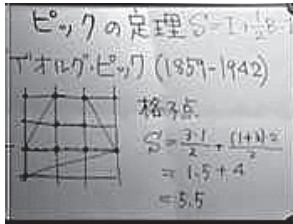 ピックの定理 S=I+½B-1
ゲオルグ・ピック(1859-1942)
格子点
S=3・1/2+(1+3)・2/2
=1.5+4
=5.5